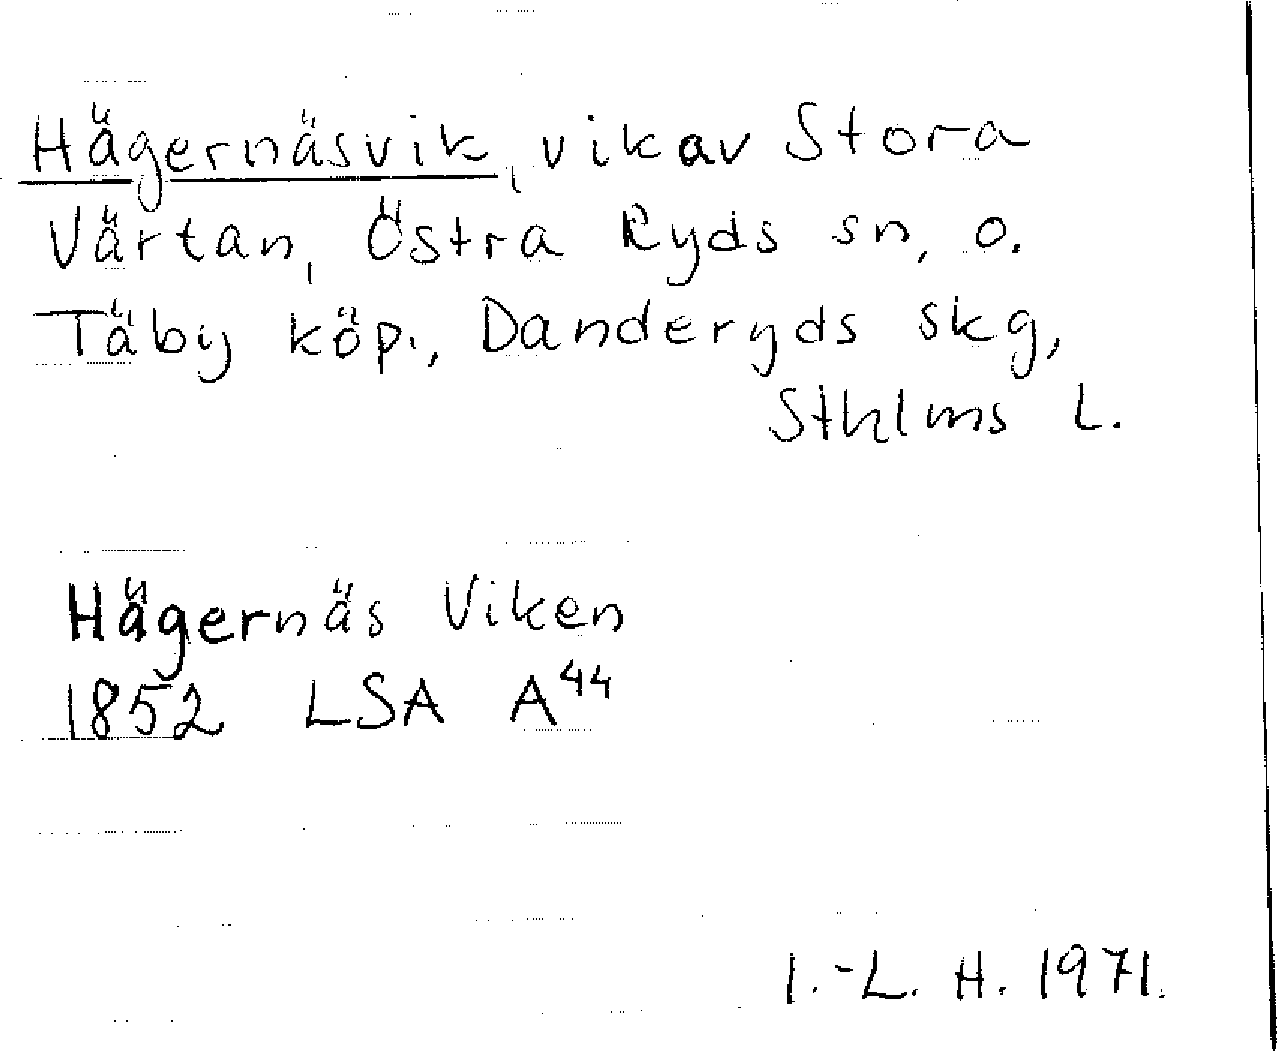 Hägernäsvik, vik av Stora
Värtan, Östra Ryds sn, o.
Täby köp., Danderyds skg,
Sthlms L.
Hägernäs Viken
1852 LSA A⁴⁴
I.-L. H. 1971.